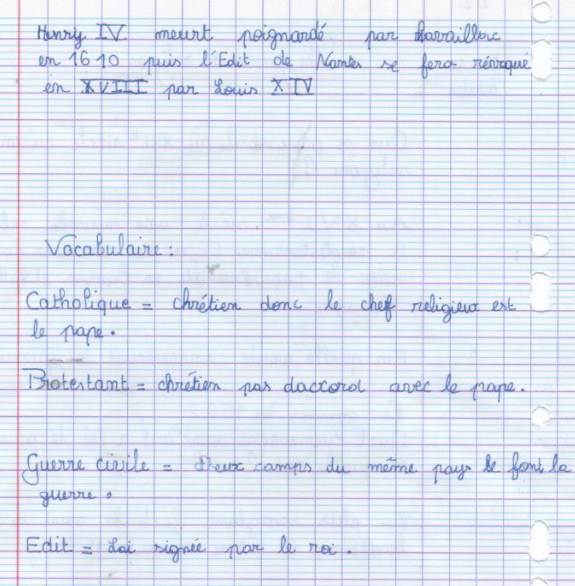 Henry IV meurt poignardé par Ravaillac
en 1610 puis l'Edit de Nantes se fera rénroqué
en XVIII par Louis XIV
Vocabulaire :
Catholique = chrétien donc le chef religieux est
le pape.
Protestant = chrétien pas daccord avec le pape.
Guerre civile = Deux camps du même pays se font la
guerre.
Edit = Loi signée par le roi.